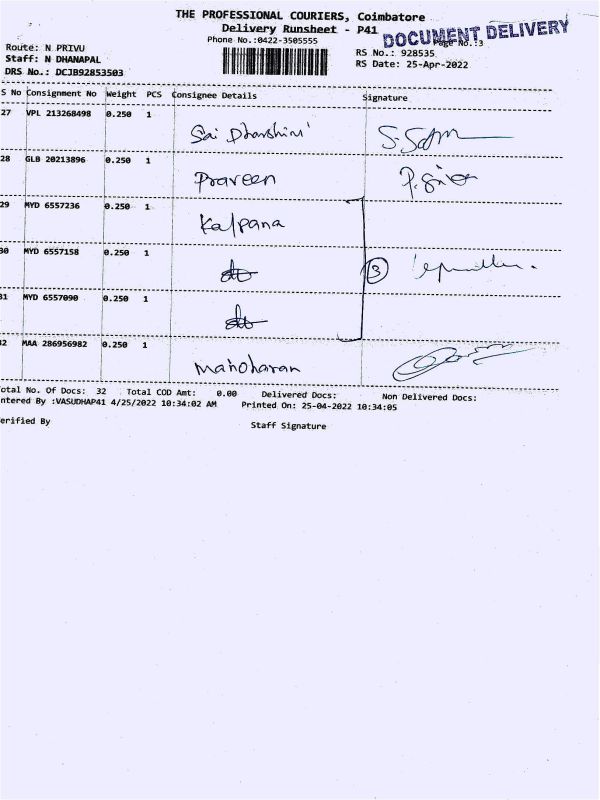 THE PROFESSIONAL COURIERS, Coimbatore
Delivery Runsheet - P41
DOCUMENT DELIVERY
Phone No.:0422-3505555
Page No.:3
Route: N PRIVU
Staff: N DHANAPAL
DRS No.: DCJB92853503
RS No.: 928535
RS Date: 25-Apr-2022
S No Consignment No Weight PCS Consignee Details Signature
27 VPL 213268498 0.250 1 Sai Dharshini
28 GLB 20213896 0.250 1 Praveen
29 MYD 6557236 0.250 1 Kalpana
30 MYD 6557158 0.250 1 do 3
31 MYD 6557090 0.250 1 do
32 MAA 286956982 0.250 1 Manoharan
otal No. Of Docs: 32 Total COD Amt: 0.00 Delivered Docs: Non Delivered Docs:
ntered By :VASUDHAP41 4/25/2022 10:34:02 AM Printed On: 25-04-2022 10:34:05
erified By Staff Signature